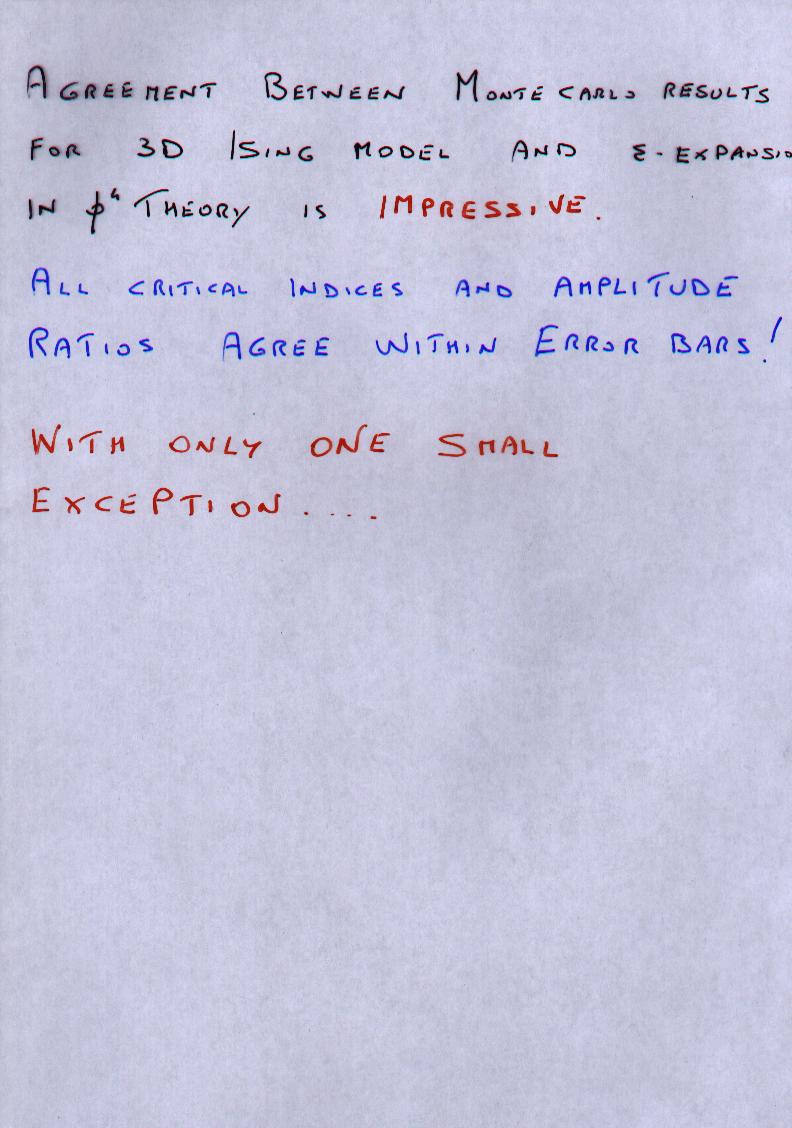 AGREEMENT BETWEEN MONTE CARLO RESULTS
FOR 3D ISING MODEL AND ε-EXPANSIO
IN ϕ⁴ THEORY IS IMPRESSIVE.
ALL CRITICAL INDICES AND AMPLITUDE
RATIOS AGREE WITHIN ERROR BARS!
WITH ONLY ONE SMALL
EXCEPTION....